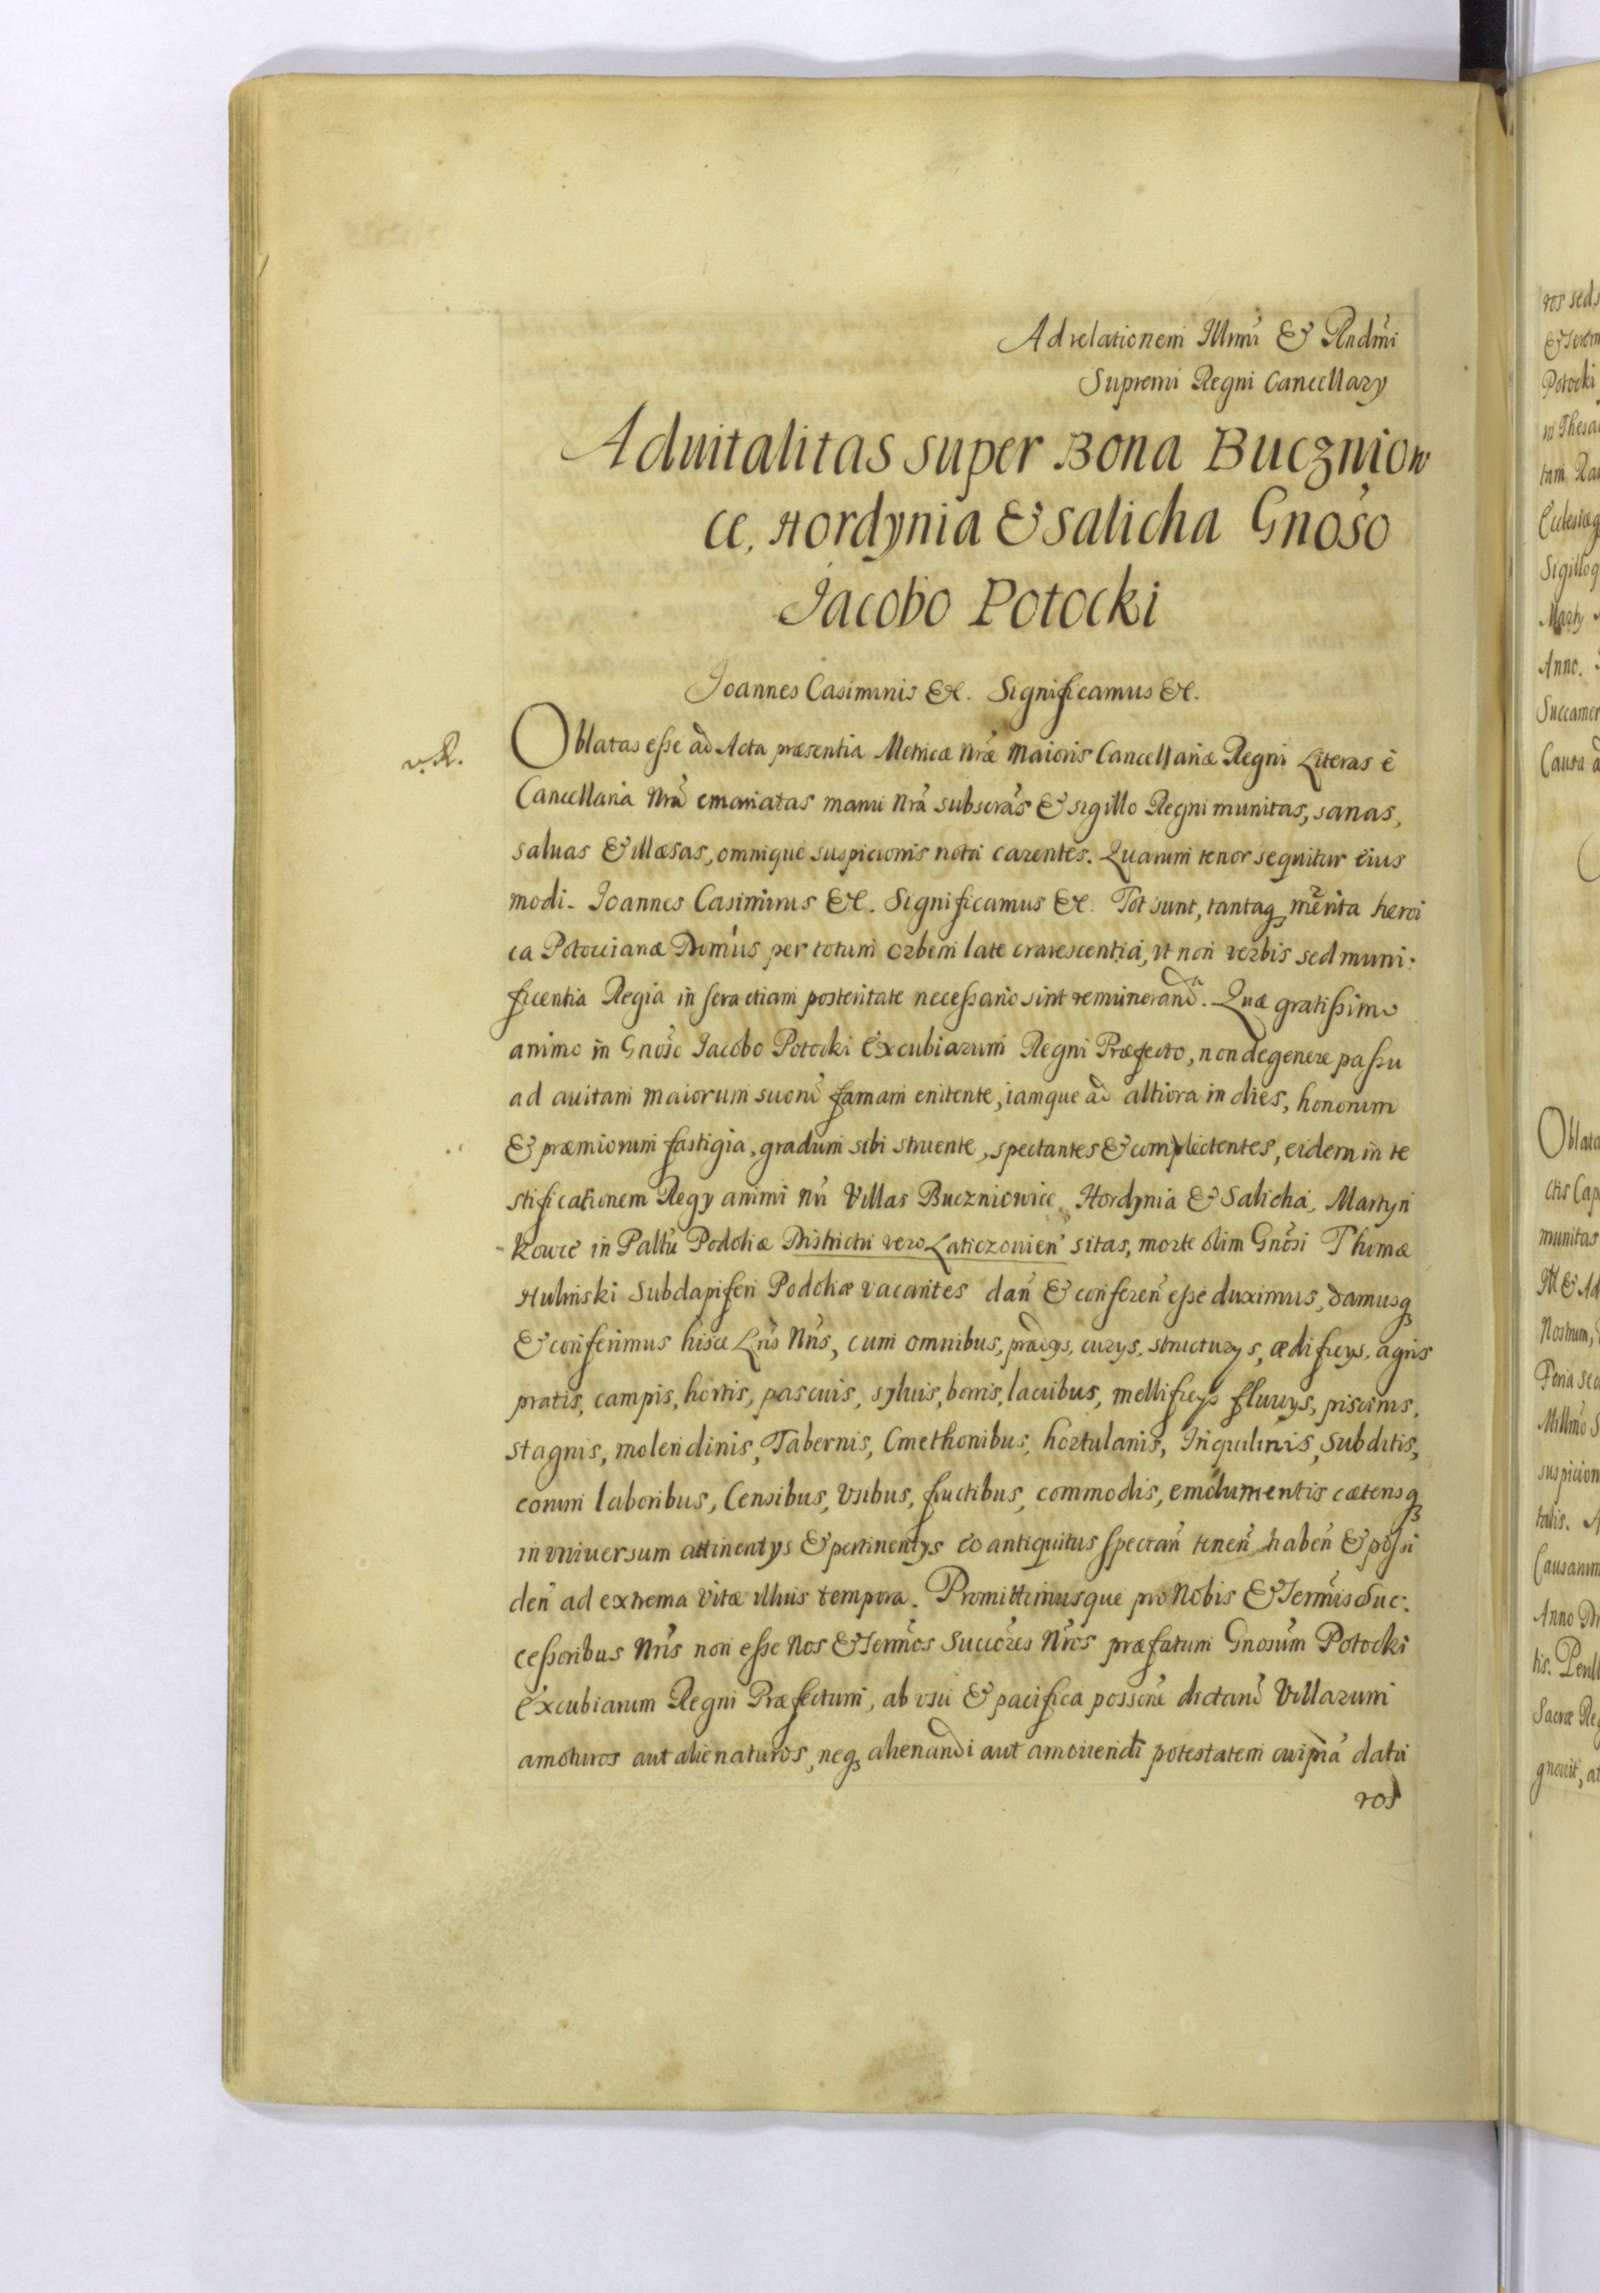 Ad relationem Illmi & Rndmi
Supremi Regni Cancellary
Aduitalitas super Bona Buczniow
ce, Hordynia & Salicha Gnoso
Jacobo Potocki
Joannes Casimirus &c. Significamus &c.
v. R.
Oblatas esse ad Acta præsentia Metricæ Nræ Maioris Cancellariæ Regni Literas è
Cancellaria Nrã emanatas manu Nrã subscras & sigillo Regni munitas, sanas,
saluas & illæsas, omnique suspicionis nota carentes. Quarum tenor sequitur eius
modi. Joannes Casimirus &c. Significamus &c. Tot sunt, tantaq merita heroi
ca Potoccianæ Domus per totum orbem late crarescentia, vt non verbis sed muni:
ficentia Regia in sera etiam posteritate necessario sint remunerand. Quæ gratissimo
animo in Gnoso Jacobo Potocki Excubiarum Regni Præfecto, non degenere passu
ad auitam maiorum suorũ famam enitente, iamque ad altiora in dies, honorum
& præmiorum fastigia, gradum sibi struente, spectantes & complectentes, eidem in te
stificationem Regy animi Nri Villas Buczniowice, Hordynia & Salicha, Martyn
kowce in Pallũ Podoliæ Districtu vero Laticzouien sitas, morte olim Gnosi Thomæ
Hulinski Subdapiferi Podoliæ vacantes dañ & confereñ esse duximus, damusq
& conferimus hisce Lris Nris, cum omnibus, prædys, curys, structurys, ædificys, agris
pratis, campis, hortis, pascuis, syluis, borris, lacubus, mellificys fluuys, piscinis,
stagnis, molendinis, Tabernis, Cmethonibus, hortulanis, Inquilinis, subditis,
eorum laboribus, Censibus, Vsibus, fructibus, commodis, emolumentis cæterisq
in vniuersum attinentys & pertinentys eo antiquitus spectañ teneñ habeñ & possi
deñ ad extrema Vitæ illius tempora. Promittimusque pro Nobis & Sermis Suc:
cessoribus Nris non esse Nos & Sermos Succores Nros præfatum Gnosum Potocki
Excubiarum Regni Præfectum, ab vsu & pacifica possone dictarũ Villarum
amoturos aut alienaturos, neq alienandi aut amouendi potestatem cuipiã datu
ros